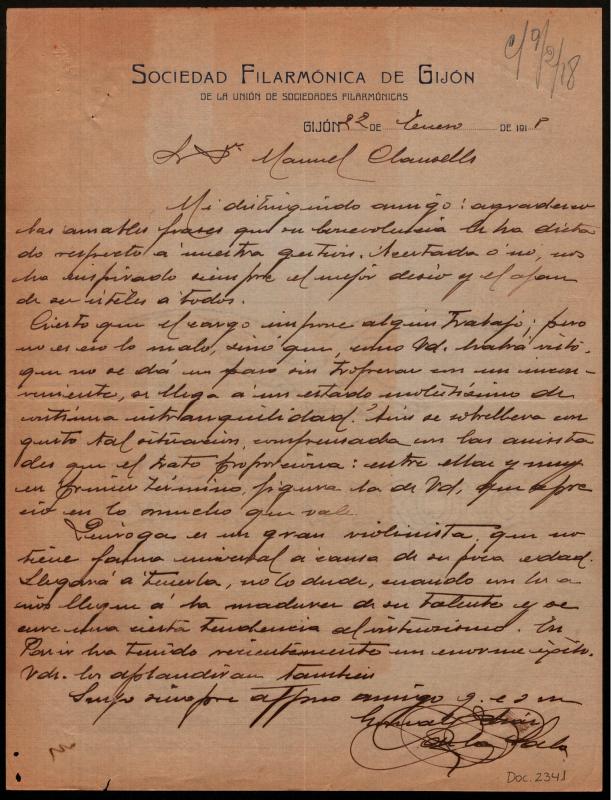 C/ 9/2/18
SOCIEDAD FILARMÓNICA DE GIJÓN
DE LA UNIÓN DE SOCIEDADES FILARMÓNICAS
GIJÓN 22 DE Enero DE 1918
Sr Dn Manuel Clausells
Mi distinguido amigo: agradezco
las amables frases que su benevolencia le ha dicta
do respecto á nuestra gestion. Acertada ó no, nos
ha inspirado siempre el mejor deseo y el afan
de ser útiles a todos.
Cierto que el cargo impone algun trabajo; pero
no es eso lo malo, sinó que, como Vd. habrá visto,
que no se dá un paso sin tropezar con un incon-
veniente, se llega á un estado molestísimo de
contínua intranquilidad. Aun se sobrelleva con
gusto tal situacion, compensada con las amista
des que el trato proporciona: entre ellas y muy
en primer término, figura la de Vd, que apre
cio en lo mucho que vale
Quiroga es un gran violinista que no
tiene fama universal á causa de su poca edad.
Llegará a tenerla, no lo dude, cuando con los a
ños llegue á la madurez de su talento y se
cure una cierta tendencia al
En
Paris ha tenido recientemente un enorme éxito.
Vds. le aplaudirán tambien
Suyo siempre affmo amigo q. e s m
de la Sala
Doc. 2341